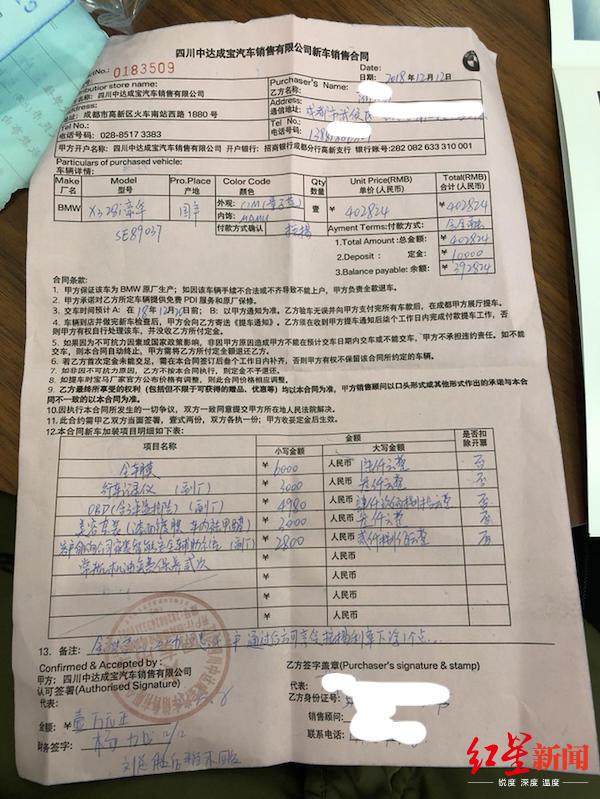 四川中达成宝汽车销售有限公司新车销售合同
No.: 0183509
Date:
日期: 2018年12月12
butor store name:
名称: 四川中达成宝汽车销售有限公司
Purchaser's Name:
乙方名称:
address
地址: 成都市高新区火车南站西路 1880 号
Address:
通信地址: 成都市武侯区
Tel No.:
电话号码: 028-8517 3383
Tel No.:
电话号码:
甲方开户名称: 四川中达成宝汽车销售有限公司 开户银行: 招商银行成都分行高新支行 银行账号:282 082 633 310 001
Particulars of purchased vehicle:
车辆详情:
Make 厂名 Model 型号 Pro.Place 产地 Color Code 颜色 Qty 数量 Unit Price(RMB) 单价 (人民币) Total(RMB) 合计 (人民币)
BMW X3 28i豪华 国产 外观: 内饰: 壹 ¥402824 ¥402824
SE89037
付款方式确认 按揭
Ayment Terms:付款方式:
1.Total Amount :总金额: ¥402824
2.Deposit : 定金: ¥10000
3.Balance payable: 余额: ¥392824
合同条款:
1. 甲方保证该车为 BMW 原厂生产; 如因该车辆手续不合法或不齐导致不能上户, 甲方负责全款退车。
2. 甲方承诺对乙方所定车辆提供免费 PDI 服务和原厂保修。
3. 交车时间预计 A: 在 18年12月 日前; B: 以甲方通知为准。乙方验车无误并向甲方支付完所有车款后, 在成都甲方展厅提车。
4. 车辆到店并做完新车检查后, 甲方会向乙方寄送《提车通知》。乙方须在收到甲方提车通知后柒个工作日内完成付款提车工作, 否
则甲方有权自行处理该车, 并没收乙方所付定金。
5. 如果因为不可抗力因素或国家政策影响, 非因甲方原因造成甲方不能在预计交车日期内交车或不能交车, 甲方不承担违约责任。如不能
交车, 则本合同自动终止, 甲方需将乙方所付定金全额退还乙方。
6. 若乙方首次定金未能交足, 需在本合同签订后叁个工作日内补齐, 否则甲方有权不保留该合同所约定的车辆。
7. 如非因不可抗力原因, 乙方不按本合同执行, 则定金不予退还。
8. 如提车时宝马厂家官方公布价格有调整, 则此合同价格相应调整。
9. 乙方最终所享受的权利 (包括但不限于可获得的赠品、优惠等) 均以本合同为准, 甲方销售顾问以口头形式或其他形式作出的承诺与本合
同不一致的以本合同为准。
10.因执行本合同所发生的一切争议, 双方一致同意提交甲方所在地人民法院解决。
11.此合约需甲乙双方当面签署, 壹式两份, 双方各执一份; 甲方收妥定金后生效。
12.本合同新车加装项目明细如下表:
项目名称 金额 小写金额 大写金额 是否扣除开票
全车膜 ¥6000 人民币 陆仟元整 否
行车记录仪 (副厂) ¥3000 人民币 叁仟元整 否
¥4980 人民币 否
¥3000 人民币 叁仟元整 否
¥2800 人民币 贰仟捌佰元整 否
常规机油免费保养贰次 ¥ 人民币
¥ 人民币
¥ 人民币
¥ 人民币
13. 备注:
Confirmed & Accepted by :
甲方: 四川中达成宝汽车销售有限公司
认可签署(Authorised Signature)
代表:
金额: ¥ 壹万元正
财务签字: 12/12
乙方签字盖章(Purchaser's signature & stamp)
代表:
乙方身份证号:
销售顾问:
联系电话:
红星新闻
锐度 深度 温度